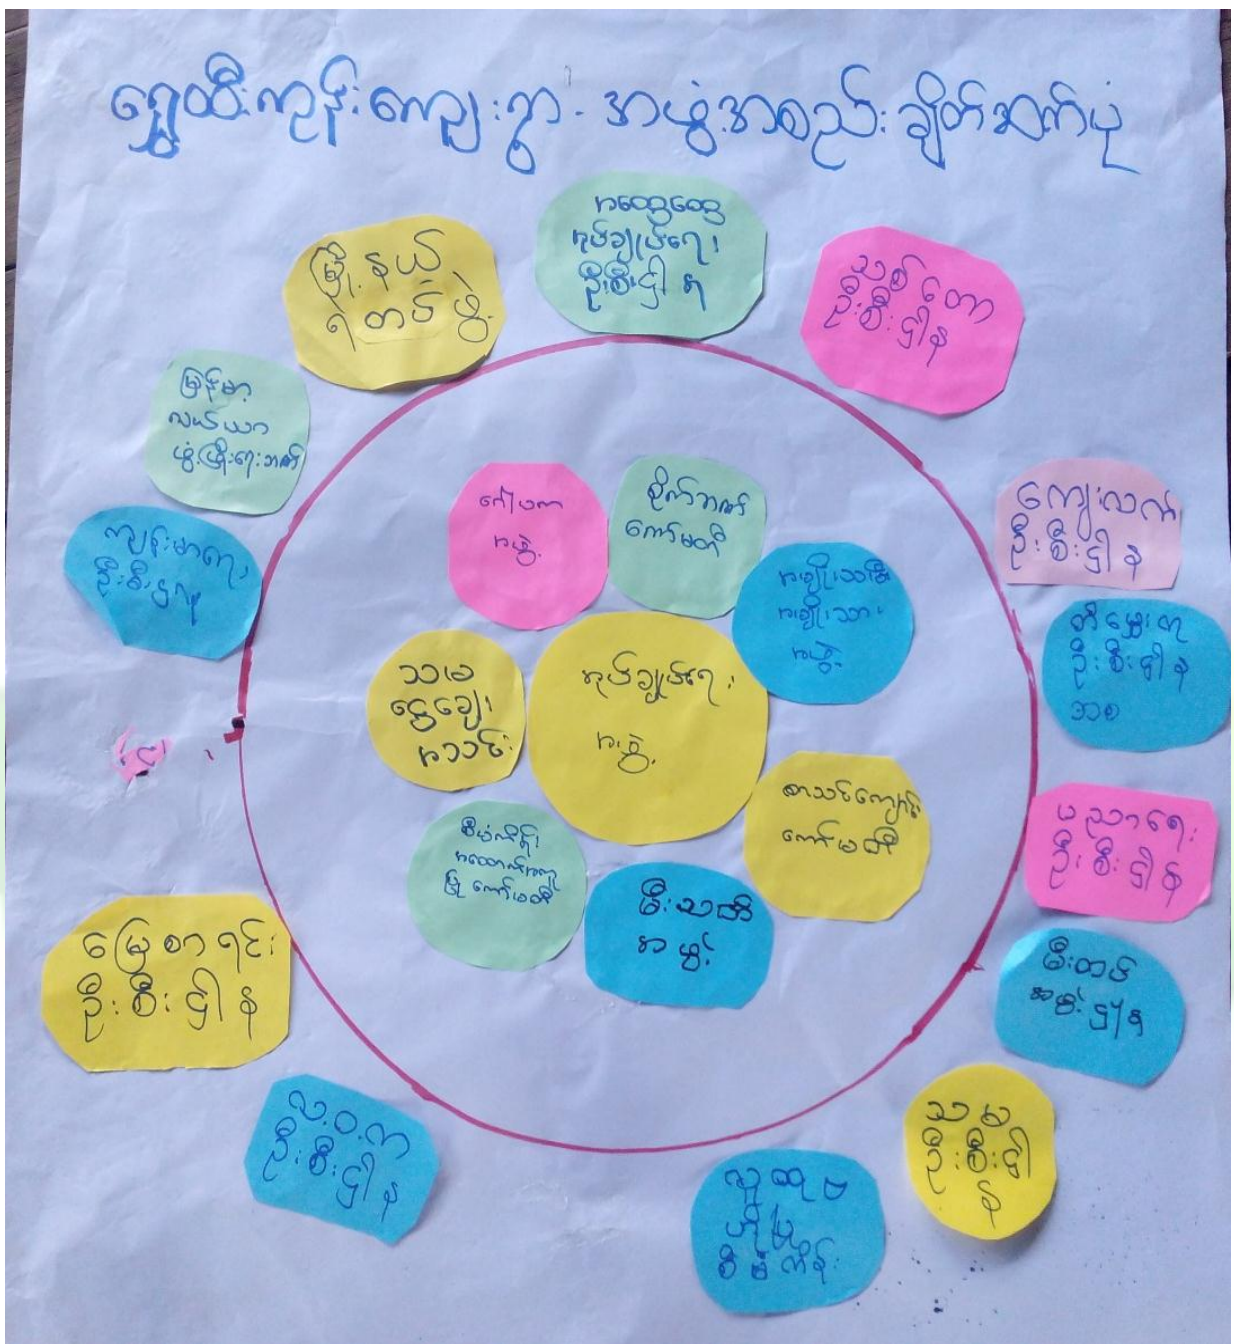 ရွှေထီးကုန်းကျေးရွာ - အဖွဲ့အစည်းချိတ်ဆက်ပုံ
အထွေထွေ
အုပ်ချုပ်ရေး
ဦးစီးဌါန
မြို့နယ်
ရဲတပ်ဖွဲ့
သစ်တော
ဦးစီးဌါန
မြန်မာ့
လယ်ယာ
ဖွံ့ဖြိုးရေးဘဏ်
ကျန်းမာရေး
ဦးစီးဌာန
ကျေးလက်
ဦးစီးဌါန
တိမွေးကု
ဦးစီးဌါန
ပညာရေး
ဦးစီးဌါန
မီးသတ်
ဦးစီးဌါန
သမ
ဦးစီးဌါ
န
လူထုဗ
ဟိုပြု
စီမံကိန်း
လ.ဝ.က
ဦးစီးဌါန
မြေစာရင်း
ဦးစီးဌါန
ဂေါပက
အဖွဲ့
စိုက်ဘဏ်
ကော်မတီ
အမျိုးသမီး
အမျိုးသား
အဖွဲ့
သမ
ငွေချေး
အသင်း
အုပ်ချုပ်ရေး
အဖွဲ့
စာသင်ကျောင်း
ကော်မတီ
စီမံကိန်း
အထောက်အကူ
ပြု ကော်မတီ
မီးသတ်
အဖွဲ့